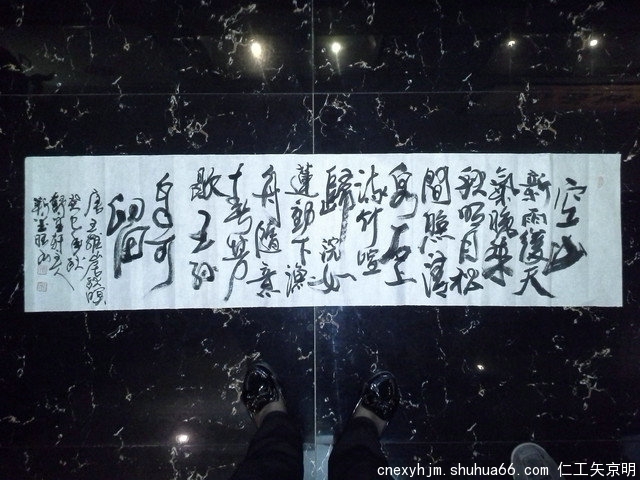 空山
新雨後天
氣晚來
秋明月松
間照清
泉石上
流竹喧
歸浣女
蓮動下漁
舟隨意
春芳
歇王孫
自可
留
唐王維山居秋暝
癸巳
cnexyhjm.shuhua66.com 仁工矢京明